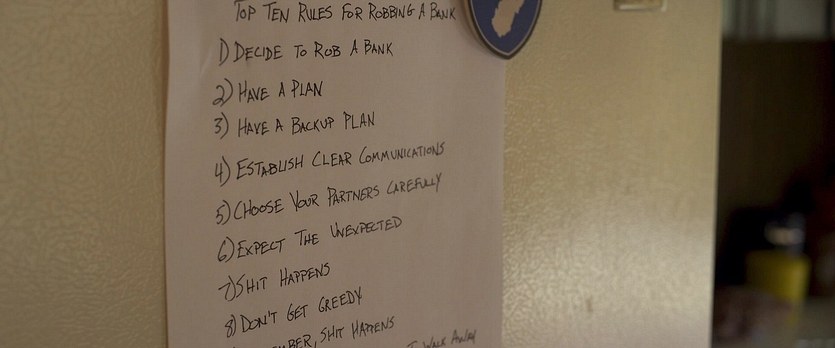 TOP TEN RULES FOR ROBBING A BANK
1) DECIDE TO ROB A BANK
2) HAVE A PLAN
3) HAVE A BACKUP PLAN
4) ESTABLISH CLEAR COMMUNICATIONS
5) CHOOSE YOUR PARTNERS CAREFULLY
6) EXPECT THE UNEXPECTED
7) SHIT HAPPENS
8) DON'T GET GREEDY
SHIT HAPPENS
WALK AWAY